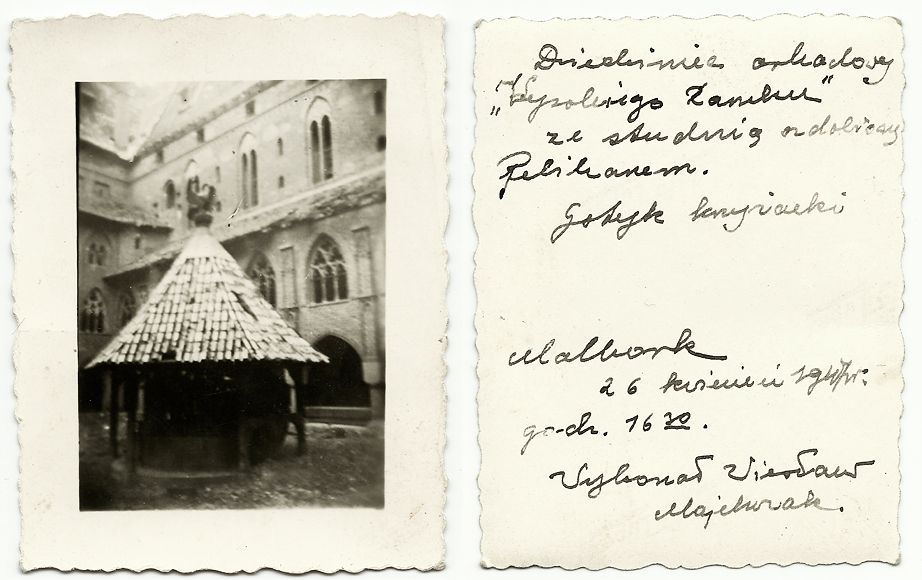 Dziedziniec arkadowy
„Wysokiego Zamku"
ze studnią ozdobioną
Pelikanem.
Gotyk krzyżacki
Malbork
26 kwiecień 1947r.
godz. 16 30.
Wykonał Wiesław
Majchrzak.